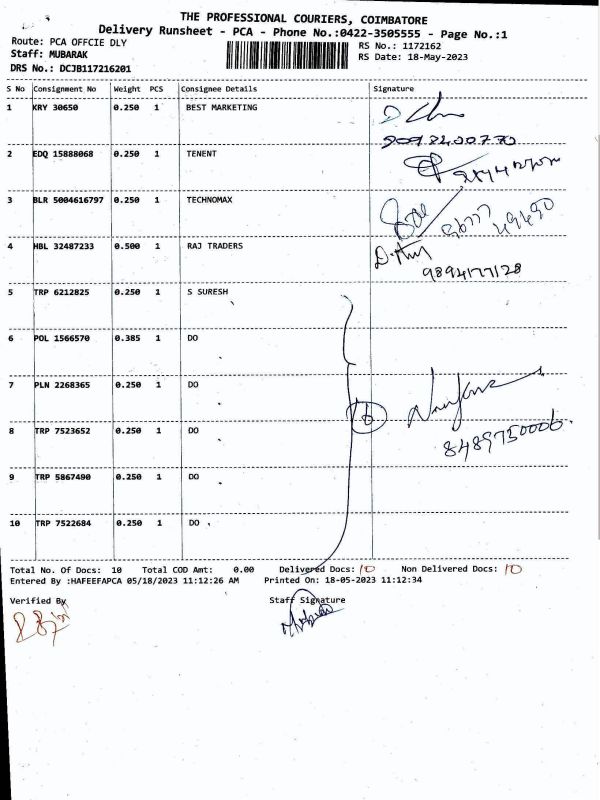 THE PROFESSIONAL COURIERS, COIMBATORE
Delivery Runsheet - PCA - Phone No.:0422-3505555 - Page No.:1
Route: PCA OFFCIE DLY
RS No.: 1172162
Staff: MUBARAK
RS Date: 18-May-2023
DRS No.: DCJB117216201
S No Consignment No Weight PCS Consignee Details Signature
1 KRY 30650 0.250 1 BEST MARKETING
2 EDQ 15888068 0.250 1 TENENT
3 BLR 5004616797 0.250 1 TECHNOMAX
4 HBL 32487233 0.500 1 RAJ TRADERS
9894177128
5 TRP 6212825 0.250 1 S SURESH
6 POL 1566570 0.385 1 DO
7 PLN 2268365 0.250 1 DO
8 TRP 7523652 0.250 1 DO
8489750006.
9 TRP 5867490 0.250 1 DO
10 TRP 7522684 0.250 1 DO
Total No. Of Docs: 10 Total COD Amt: 0.00 Delivered Docs: 10 Non Delivered Docs: 10
Entered By :HAFEEFAPCA 05/18/2023 11:12:26 AM Printed On: 18-05-2023 11:12:34
Verified By Staff Signature